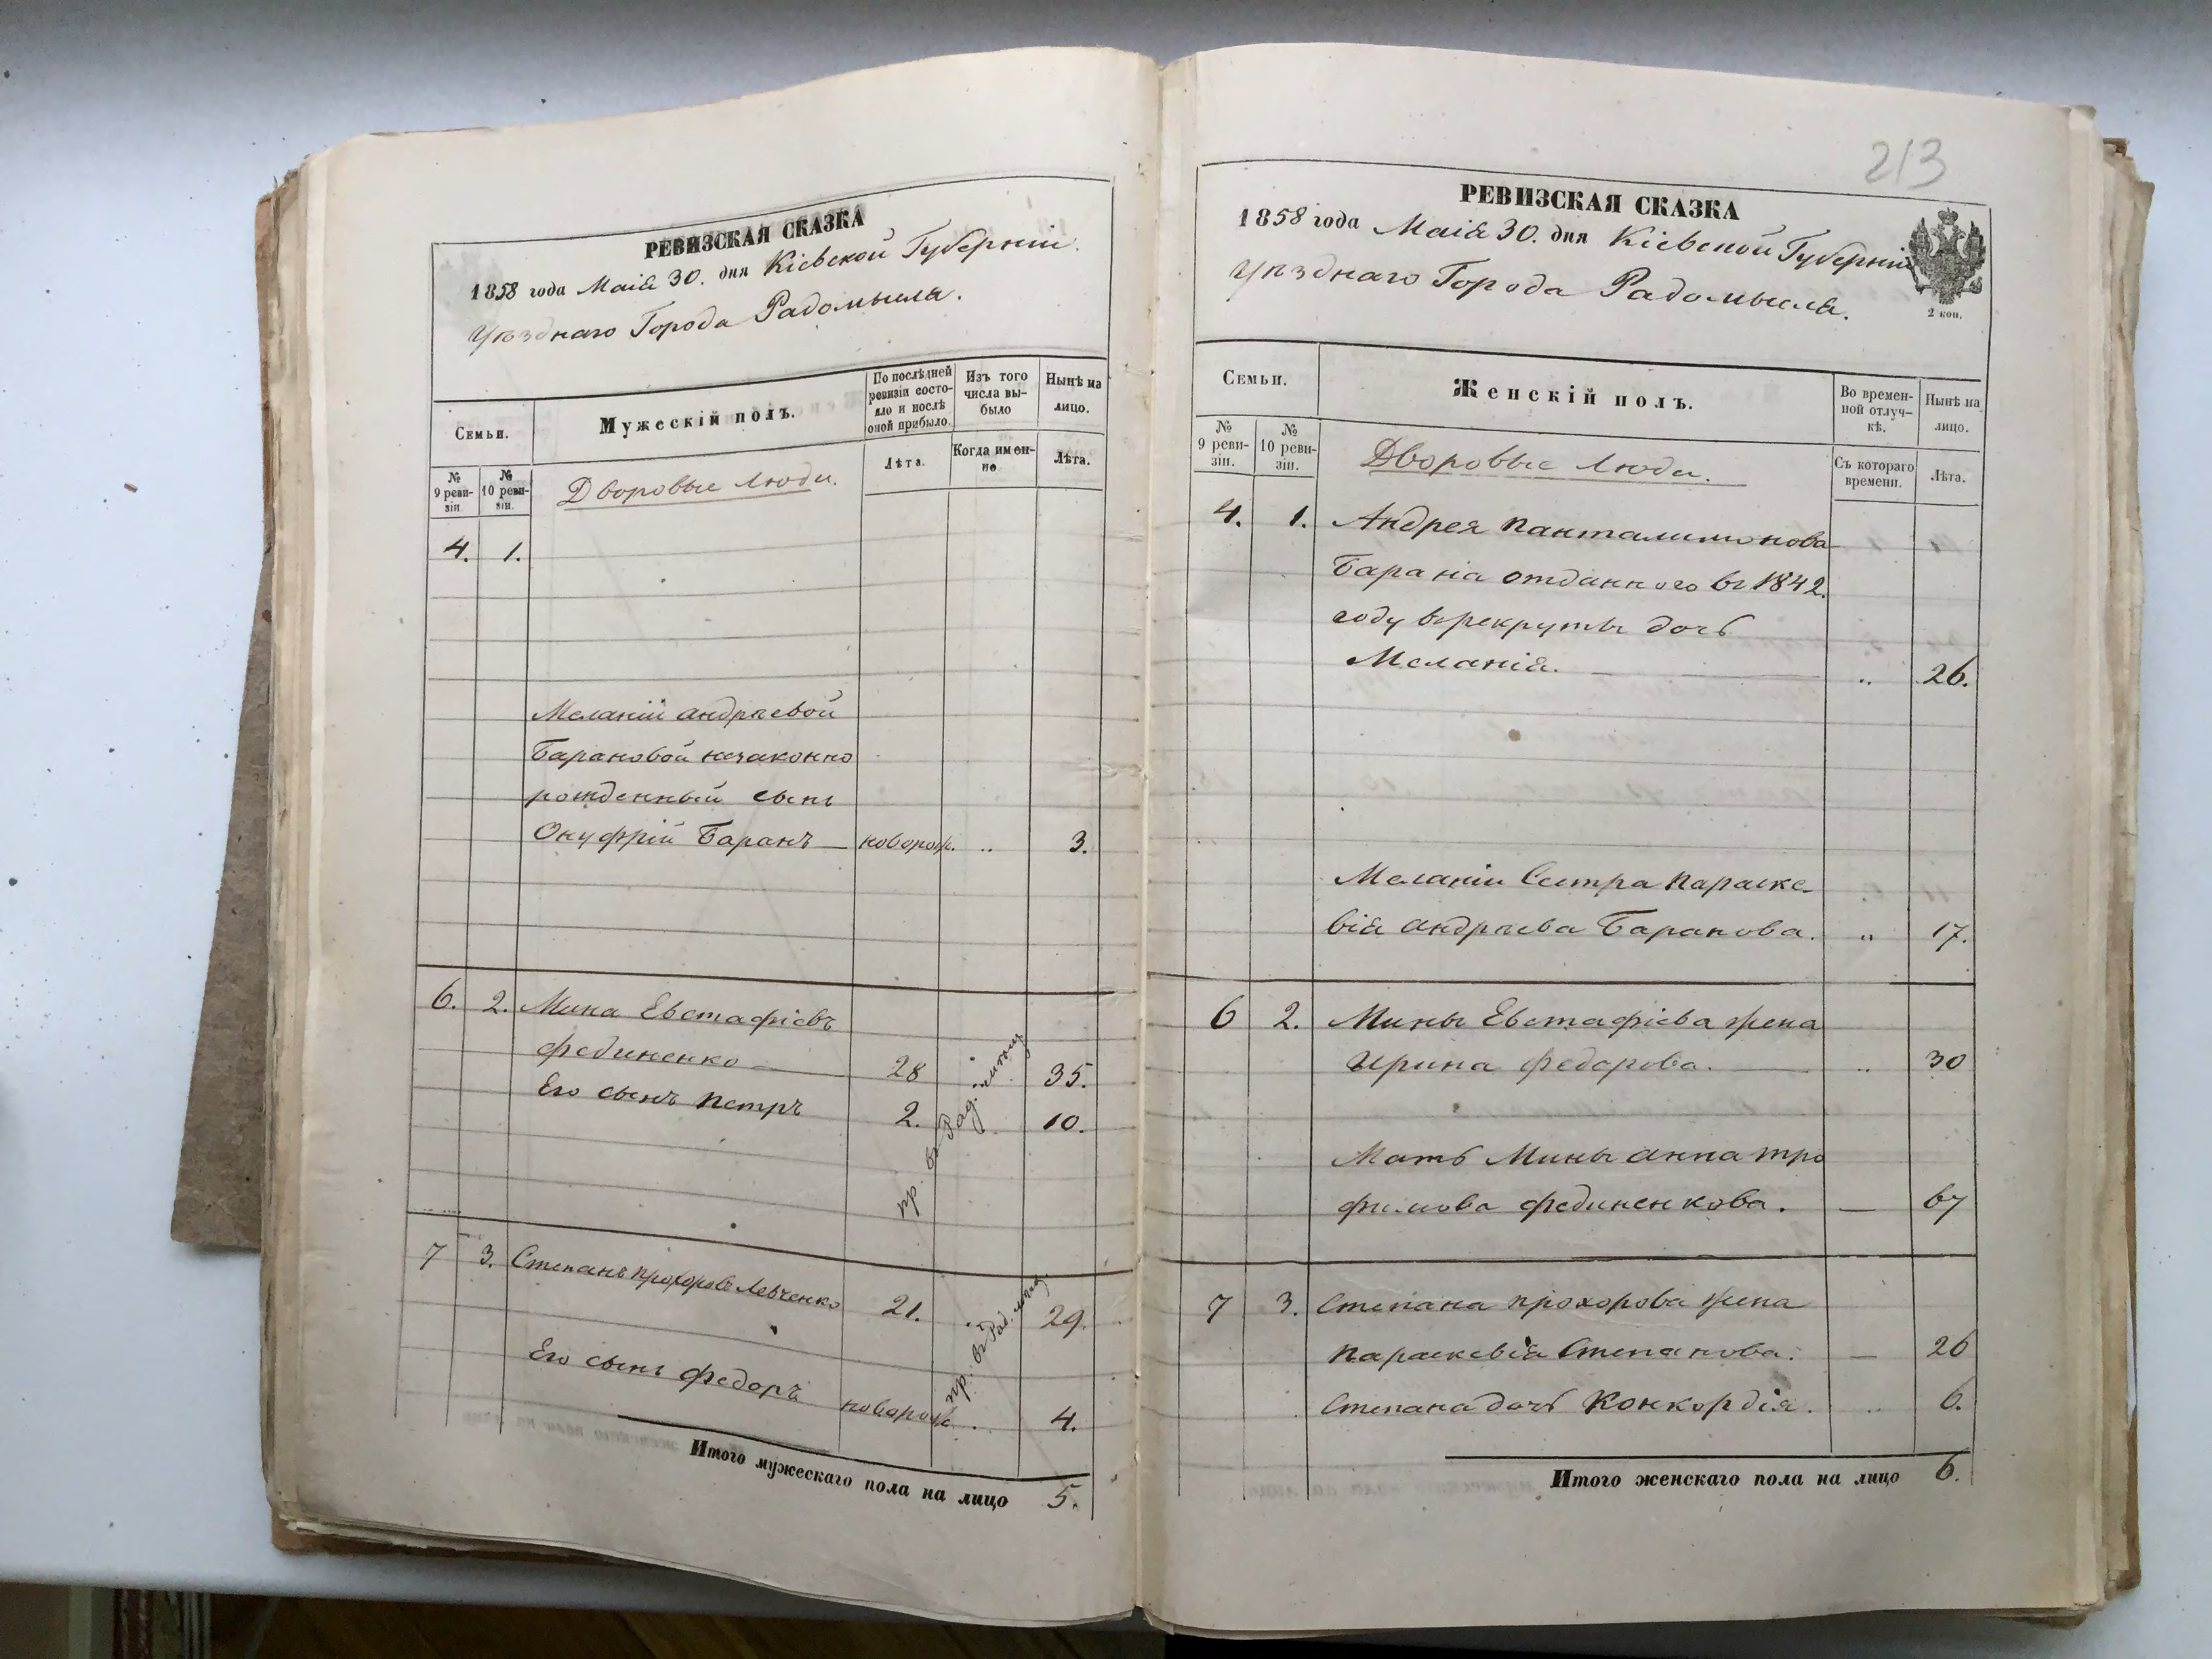 РЕВИЗСКАЯ СКАЗКА
1858 года Маія 30. дня Кіевской Губерніи.
Уѣзднаго Города Радомысля.
Семьи.
Мужескій полъ.
По послѣдней ревизіи состояло и послѣ оной прибыло.
Изъ того числа выбыло
Нынѣ на лицо.
№ 9 ревизіи.
№ 10 ревизіи.
Дворовые люди.
Лѣта.
Когда именно
Лѣта.
4. 1.
Меланіи андреевой
Барановой незаконно
рожденный сынъ
Онуфрій Баранъ — новорож. „ 3.
6. 2. Мина Евстафіевъ
Фединенко — 28 „ 35.
Его сынъ Петръ 2. 10.
пр. въ Рад.
7 3. Степанъ Прохоровъ Левченко 21. „ 29.
пр. въ Рад.
Его сынъ Федоръ новорож. „ 4.
Итого мужескаго пола на лицо 5.
213
РЕВИЗСКАЯ СКАЗКА
1858 года Маія 30. дня Кіевской Губерніи
Уѣзднаго Города Радомысля.
2 коп.
Семьи.
Женскій полъ.
Во временной отлучкѣ.
Нынѣ на лицо.
№ 9 ревизіи.
№ 10 ревизіи.
Дворовые люди.
Съ котораго времени.
Лѣта.
4. 1. Андрея Панталимонова
Барана отданного въ 1842.
году врекруты дочь
Меланія. — „ 26.
Меланіи Сестра Параске-
вія андреева Баранова. „ 17.
6 2. Мины Евстафіева жена
Ирина Федорова. — „ 30
Мать Мины анна Тро
фимова Фединенкова. — 67
7 3. Степана Прохорова жена
Параскевія Степанова. — 26
Степана дочь Конкордія. „ 6.
Итого женскаго пола на лицо 6.